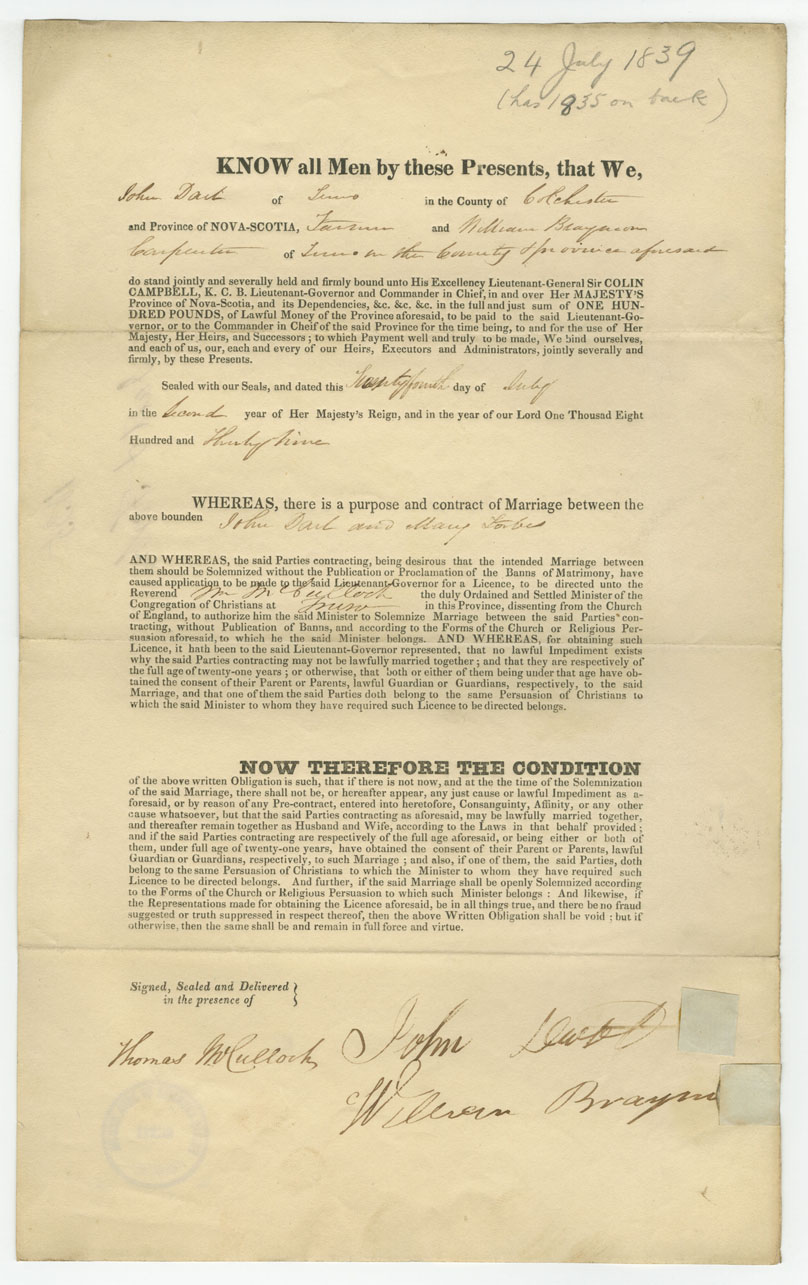 24 July 1839
(has 1835 on back)
KNOW all Men by these Presents, that We,
John Dart of Truro in the County of Colchester
and Province of NOVA-SCOTIA, Farmer and William Braynion
Carpenter of Truro in the County & province aforesaid
do stand jointly and severally held and firmly bound unto His Excellency Lieutenant-General Sir COLIN
CAMPBELL, K. C. B. Lieutenant-Governor and Commander in Chief, in and over Her MAJESTY'S
Province of Nova-Scotia, and its Dependencies, &c. &c. &c. in the full and just sum of ONE HUN-
DRED POUNDS, of Lawful Money of the Province aforesaid, to be paid to the said Lieutenant-Go-
vernor, or to the Commander in Cheif of the said Province for the time being, to and for the use of Her
Majesty, Her Heirs, and Successors ; to which Payment well and truly to be made, We bind ourselves,
and each of us, our, each and every of our Heirs, Executors and Administrators, jointly severally and
firmly, by these Presents.
Sealed with our Seals, and dated this Twentyfourth day of July
in the Second year of Her Majesty's Reign, and in the year of our Lord One Thousad Eight
Hundred and Thirty Nine
WHEREAS, there is a purpose and contract of Marriage between the
above bounden John Dart and Mary Forbes
AND WHEREAS, the said Parties contracting, being desirous that the intended Marriage between
them should be Solemnized without the Publication or Proclamation of the Banns of Matrimony, have
caused application to be made to the said Lieutenant-Governor for a Licence, to be directed unto the
Reverend Wm McCulloch the duly Ordained and Settled Minister of the
Congregation of Christians at Truro in this Province, dissenting from the Church
of England, to authorize him the said Minister to Solemnize Marriage between the said Parties con-
tracting, without Publication of Banns, and according to the Forms of the Church or Religious Per-
suasion aforesaid, to which he the said Minister belongs. AND WHEREAS, for obtaining such
Licence, it hath been to the said Lieutenant-Governor represented, that no lawful Impediment exists
why the said Parties contracting may not be lawfully married together ; and that they are respectively of
the full age of twenty-one years ; or otherwise, that both or either of them being under that age have ob-
tained the consent of their Parent or Parents, lawful Guardian or Guardians, respectively, to the said
Marriage, and that one of them the said Parties doth belong to the same Persuasion of Christians to
which the said Minister to whom they have required such Licence to be directed belongs.
NOW THEREFORE THE CONDITION
of the above written Obligation is such, that if there is not now, and at the the time of the Solemnization
of the said Marriage, there shall not be, or hereafter appear, any just cause or lawful Impediment as a-
foresaid, or by reason of any Pre-contract, entered into heretofore, Consanguinty, Affinity, or any other
cause whatsoever, but that the said Parties contracting as aforesaid, may be lawfully married together,
and thereafter remain together as Husband and Wife, according to the Laws in that behalf provided ;
and if the said Parties contracting are respectively of the full age aforesaid, or being either or both of
them, under full age of twenty-one years, have obtained the consent of their Parent or Parents, lawful
Guardian or Guardians, respectively, to such Marriage ; and also, if one of them, the said Parties, doth
belong to the same Persuasion of Christians to which the Minister to whom they have required such
Licence to be directed belongs. And further, if the said Marriage shall be openly Solemnized according
to the Forms of the Church or Religious Persuasion to which such Minister belongs : And likewise, if
the Representations made for obtaining the Licence aforesaid, be in all things true, and there be no fraud
suggested or truth suppressed in respect thereof, then the above Written Obligation shall be void ; but if
otherwise, then the same shall be and remain in full force and virtue.
Signed, Sealed and Delivered
in the presence of
Thomas McCulloch John
William